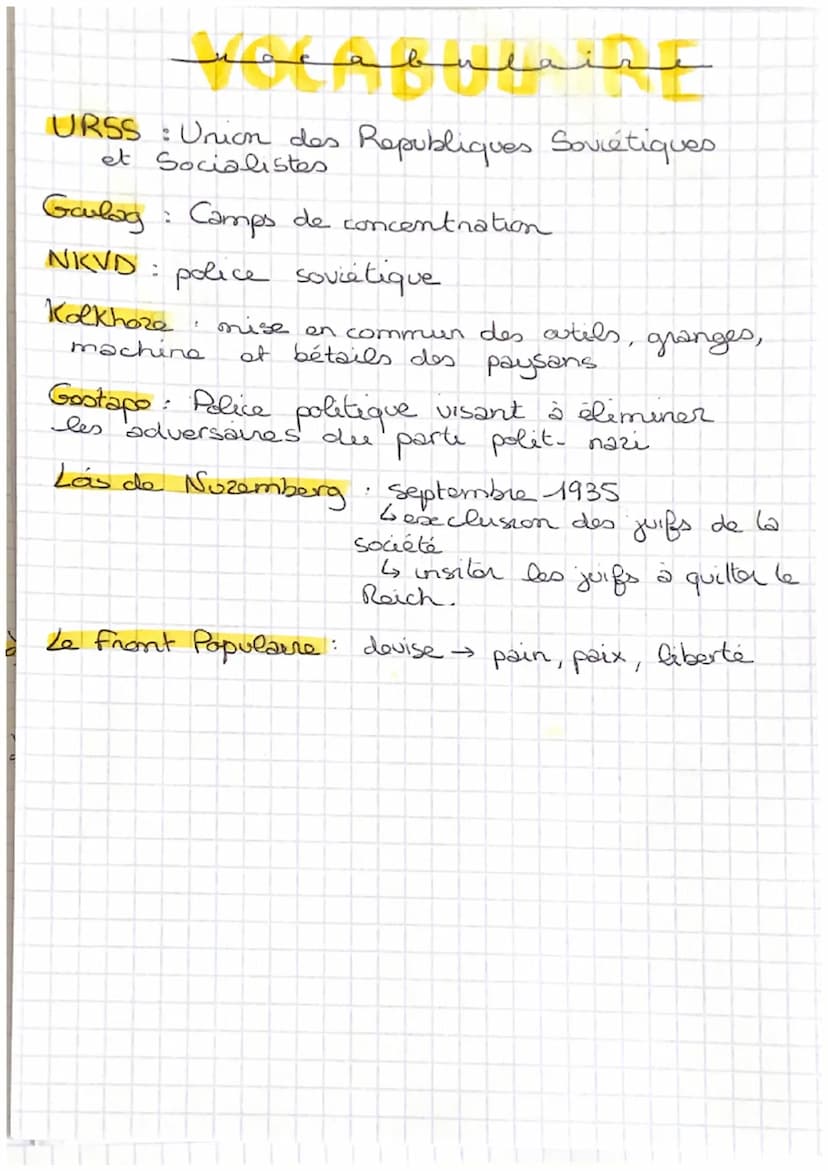 VOCABULAIRE
vocabulaire
URSS : Union des Republiques Soviétiques
et Socialistes
Goulag : Camps de concentration
NKVD : police soviétique
Kolkhoze : mise en commun des outils, granges,
machine et bétails des paysans
Gestapo : Police politique visant à éliminer
les adversaires du parti polit- nazi
Lois de Nuremberg : septembre 1935
↳ exclusion des juifs de la
société
↳ insiter les juifs à quitter le
Reich.
Le Front Populaire : devise → pain, paix, liberté